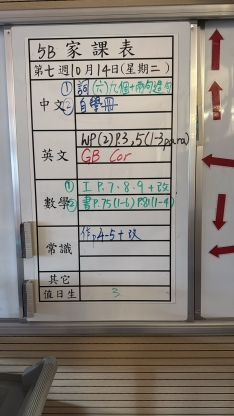 5B 家課表
第七週10月14日(星期二)
中文 ① 詞(六)九個+兩句造句
② 自學冊
英文 WP(2)P.3,5(1-3para)
GB Cor
數學 ① I P.7.8.9 + 改
② 書P.75(1-6) P.81(1-4)
常識 作p4-5+改
其它
值日生 3